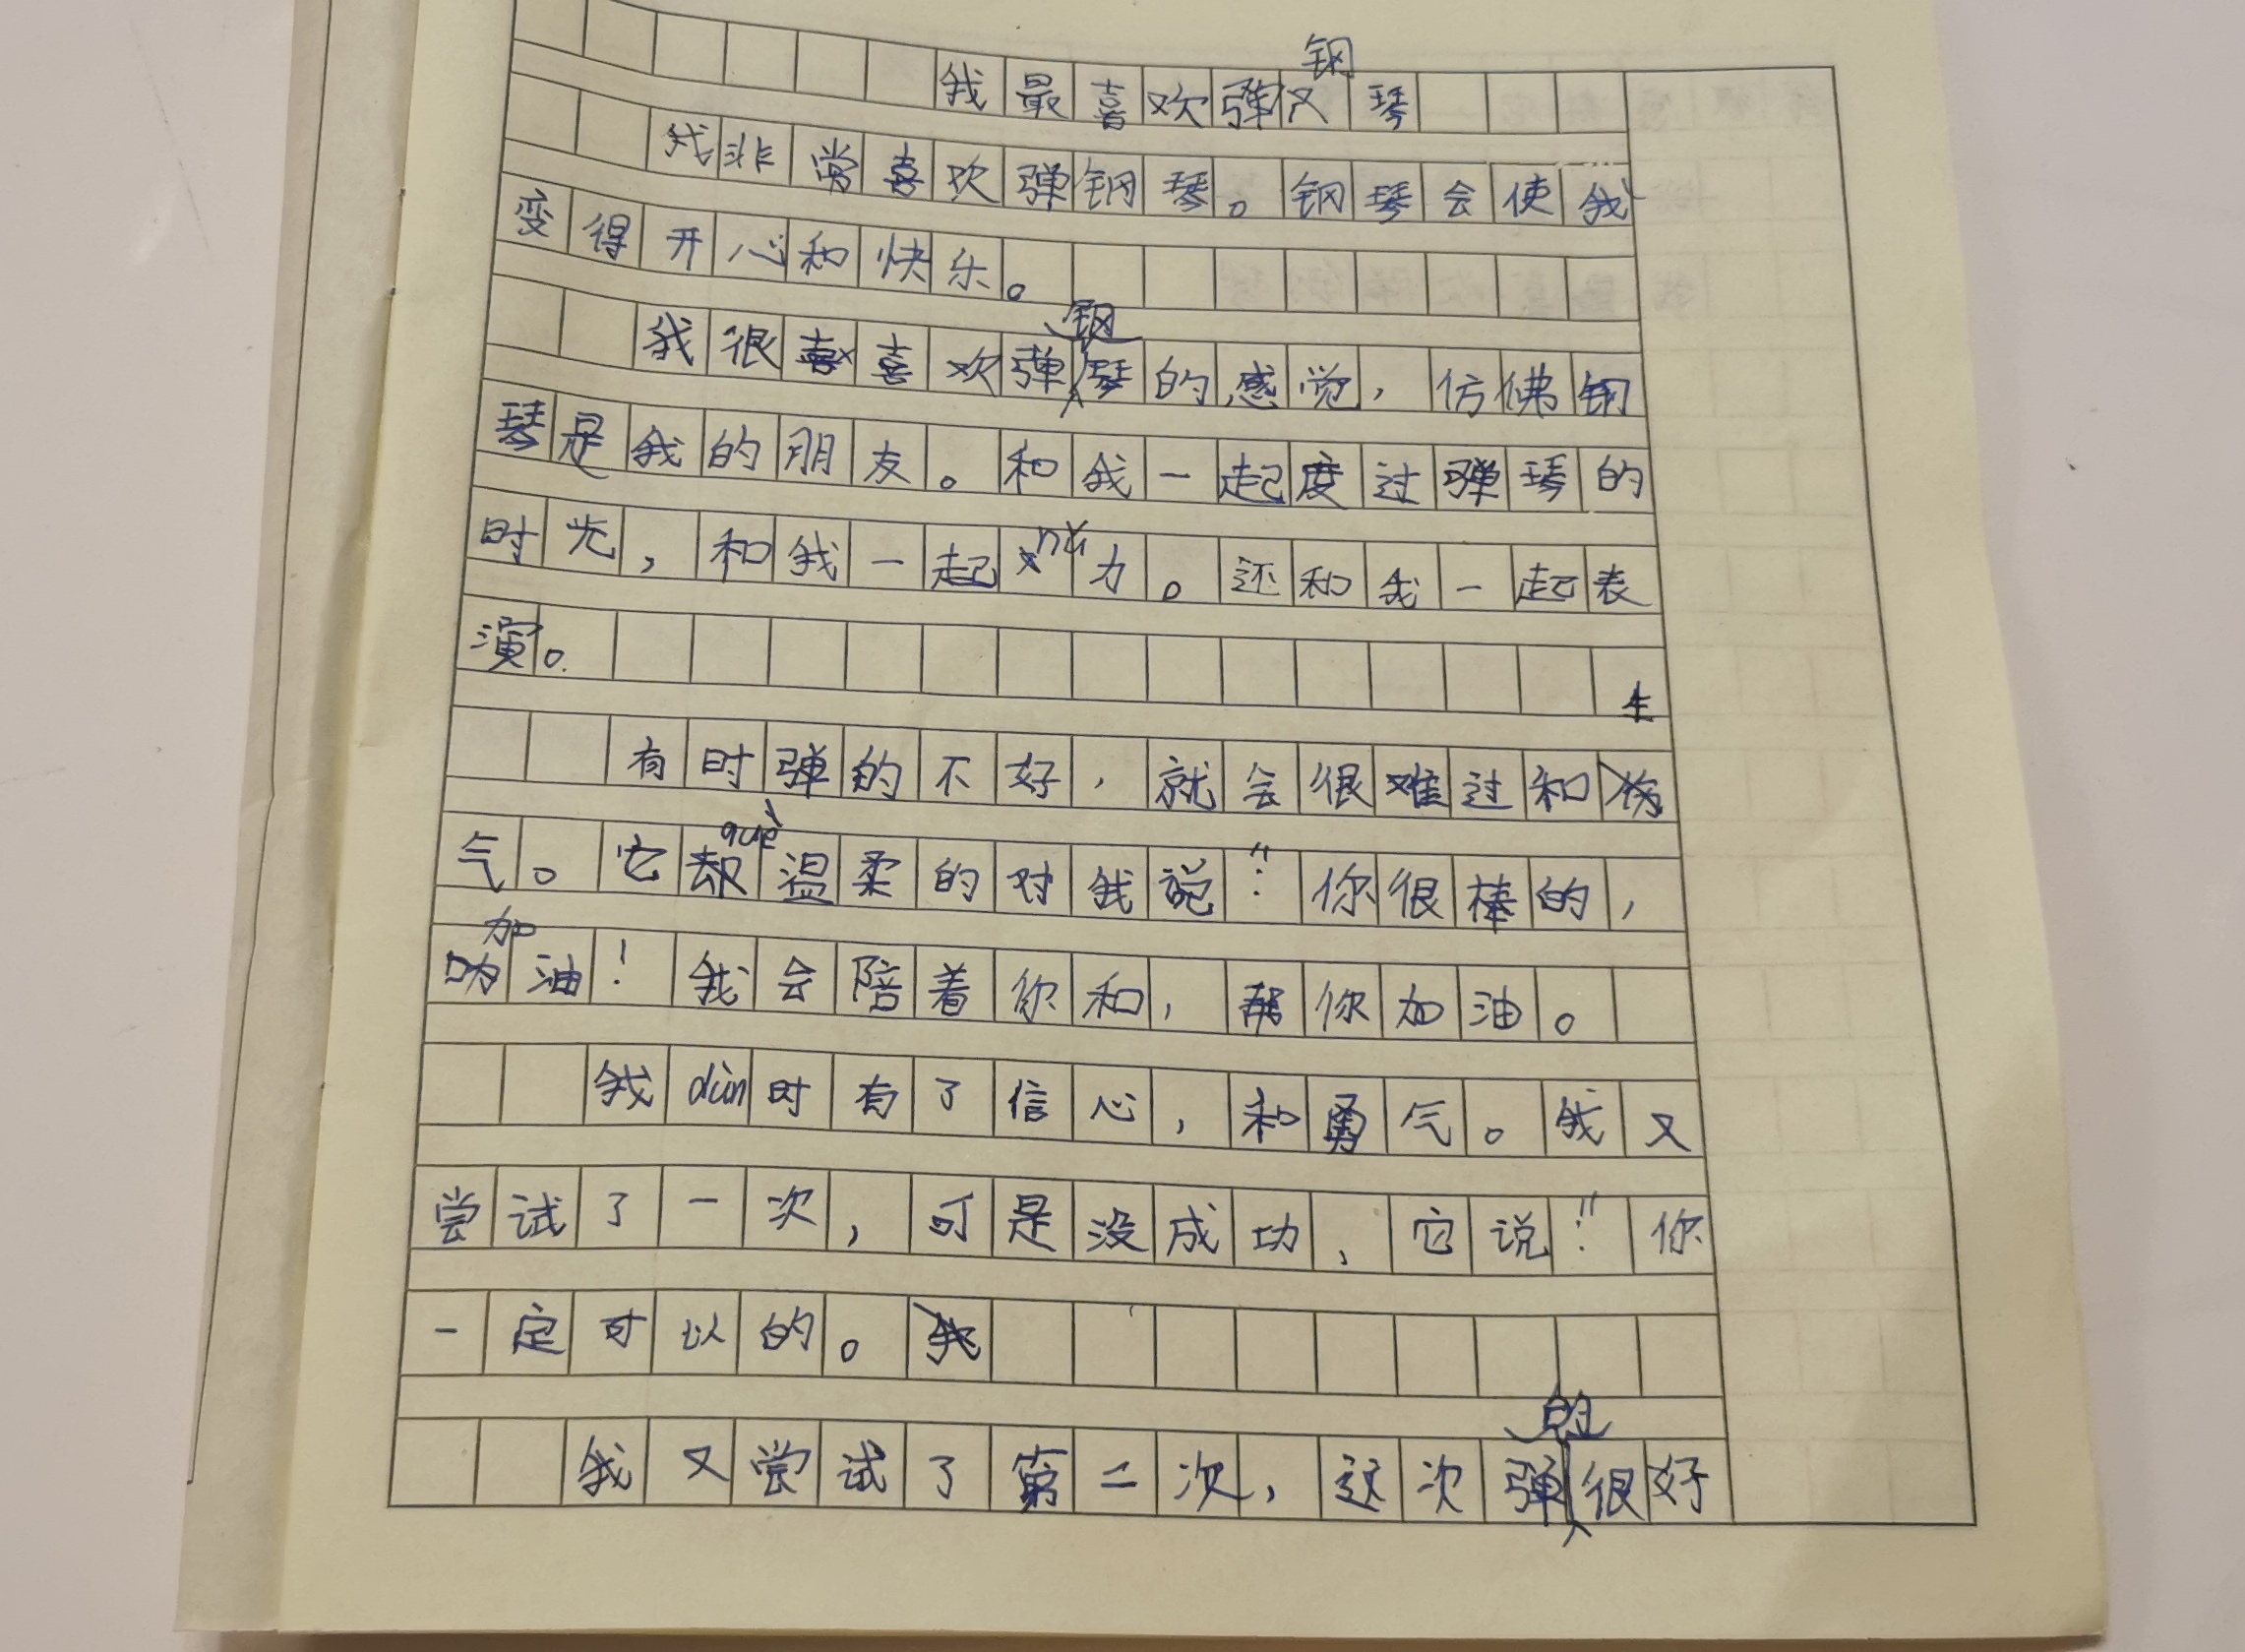 我最喜欢弹钢琴
我非常喜欢弹钢琴。钢琴会使我
变得开心和快乐。
我很喜欢弹钢琴的感觉，仿佛钢
琴是我的朋友。和我一起度过弹琴的
时光，和我一起nǔ力。还和我一起表
演。
有时弹的不好，就会很难过和生
气。它却què温柔的对我说：“你很棒的，
加油！我会陪着你和，帮你加油。
我dùn时有了信心，和勇气。我又
尝试了一次，可是没成功，它说：“你
一定可以的。
我又尝试了第二次，这次弹的很好